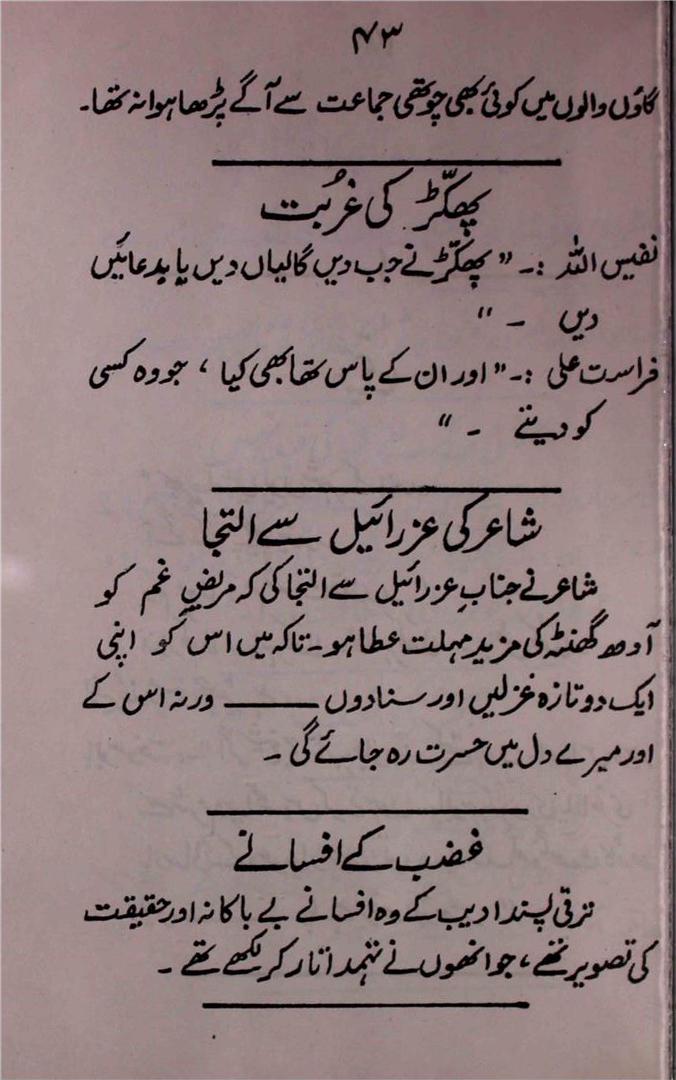 ۴۳
گاؤں والوں میں کوئی بھی چوتھی جماعت سے آگے پڑھا ہوا نہ تھا۔
پھکّڑ کی غربُت
نفیس اللہ :۔ " پھکّڑ نے جب دیں گالیاں دیں یا بدعائیں
دیں ۔ "
فراست علی :۔ " اور ان کے پاس تھا بھی کیا ، جو وہ کسی
کو دیتے ۔ "
شاعر کی عزرائیل سے التجا
شاعر نے جنابِ عزرائیل سے التجا کی کہ مریضِ غم کو
آدھ گھنٹہ کی مزید مہلت عطا ہو۔ تاکہ میں اس کو اپنی
ایک دو تازہ غزلیں اور سنا دوں ——— ورنہ اس کے
اور میرے دل میں حسرت رہ جائے گی ۔
غضب کے افسانے
ترقی پسند ادیب کے وہ افسانے بے باکانہ اور حقیقت
کی تصویر تھے ، جو انھوں نے تہمد اتار کر لکھے تھے ۔